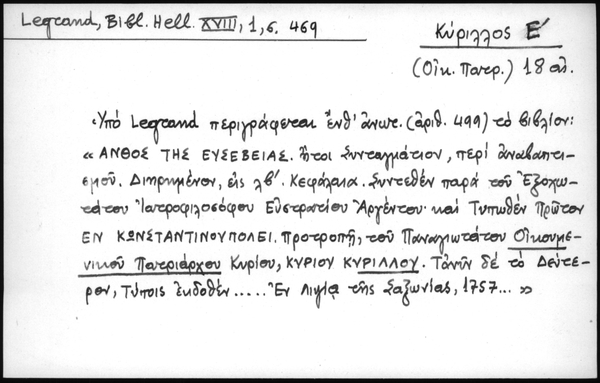 Legrand, Bibl. Hell. XVIII, 1, σ. 469
Κύριλλος Ε΄
(Οἰκ. Πατρ.) 18 αἰ.
Ὑπό Legrand περιγράφεται ἔνθ' ἀνωτ. (ἀριθ. 499) τό βιβλίον:
« ΑΝΘΟΣ ΤΗΣ ΕΥΣΕΒΕΙΑΣ. ἤτοι Συνταγμάτιον, περί ἀναβαπτι-
σμοῦ. Διῃρημένον, εἰς λβ΄. Κεφάλαια. Συντεθέν παρά τοῦ Ἐξοχω-
τάτου Ἰατροφιλοσόφου Εὐστρατίου Ἀργέντου· καί Τυπωθέν Πρῶτον
ΕΝ ΚΩΝΣΤΑΝΤΙΝΟΥΠΟΛΕΙ. Προτροπῇ, τοῦ Παναγιωτάτου Οἰκουμε-
νικοῦ Πατριάρχου Κυρίου, ΚΥΡΙΟΥ ΚΥΡΙΛΛΟΥ. Τανῦν δέ τό Δεύτε-
ρον, Τύποις ἐκδοθέν ..... Ἐν Λιψίᾳ τῆς Σαξωνίας, 1757... »